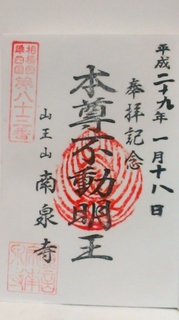 平成二十九年一月十八日
奉拝記念
本尊不動明王
山王山南泉寺
第八十三番